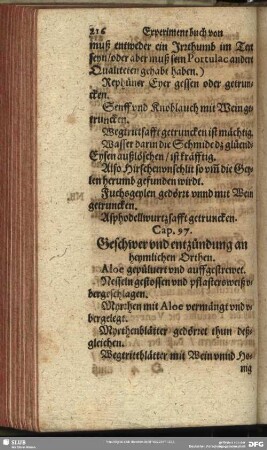 216 Experiment buch von
muß entweder ein Irꝛthumb im Text
seyn/oder aber muß sein Portulac anden
Qualiteten gehabt haben.)
Rephüner Eyer gessen oder getrun-
cken.
Senff vnd Knoblauch mit Wein ge-
truncken.
Wegtrittsafft getruncken ist mächtig.
Wasser darin die Schmide dz glüend
Eysen außlöschen/ist kräfftig.
Also Hirschenvnschlit so vm̃ die Gey-
len herumb gefunden wirdt.
Fuchsgeylen gedört vnnd mit Wein
getruncken.
Asphodellwurtzsafft getruncken.
Cap. 97.
Geschwer vnd entzündung an
heymlichen Orthen.
Aloe gepülvert vnd auffgestrewet.
Nesseln gestossen vnd pflastersweiß v-
bergeschlagen.
Myrrhen mit Aloe vermängt vnd v-
bergelegt.
Myrthenblätter gedörret thun deß-
gleichen.
Wegtrittblätter mit Wein vnnd Ho-
nig
SLUB
DFG